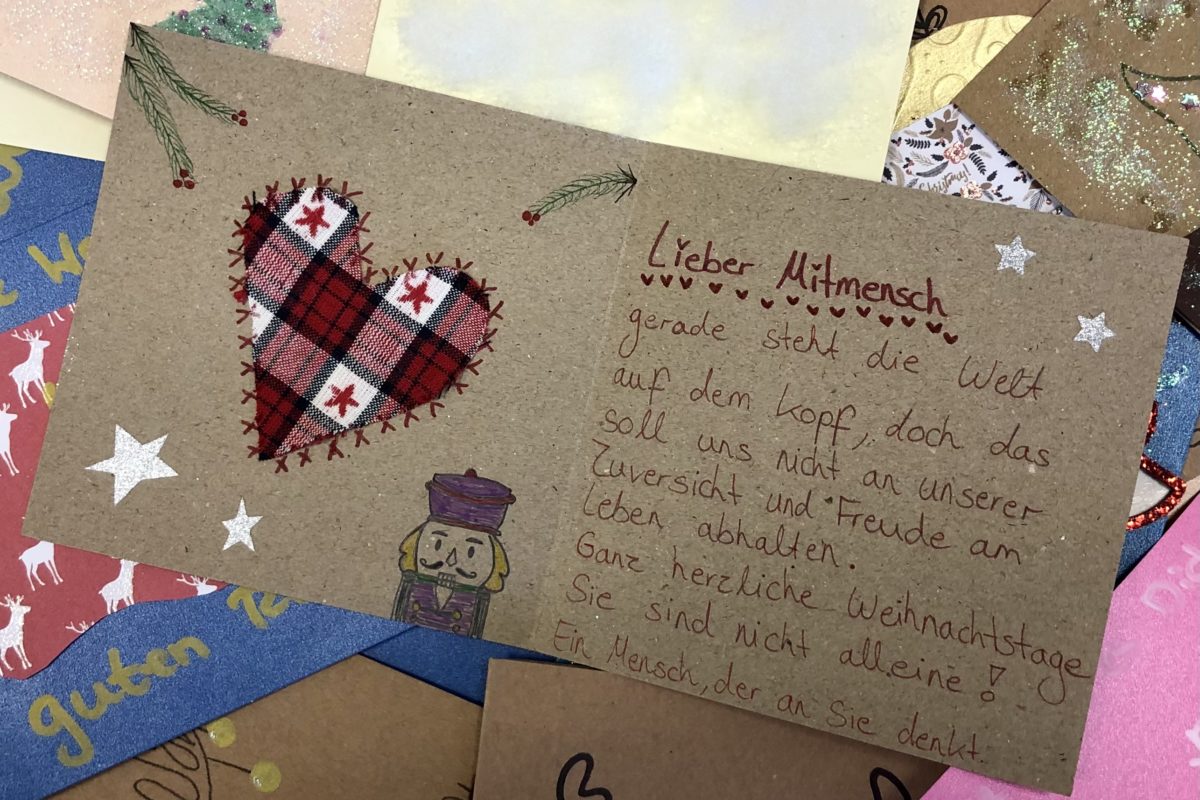 Lieber Mitmensch
gerade steht die Welt
auf dem Kopf, doch das
soll uns nicht an unserer
Zuversicht und Freude am
Leben abhalten.
Ganz herzliche Weihnachtstage
Sie sind nicht alleine!
Ein Mensch, der an Sie denkt.
guten